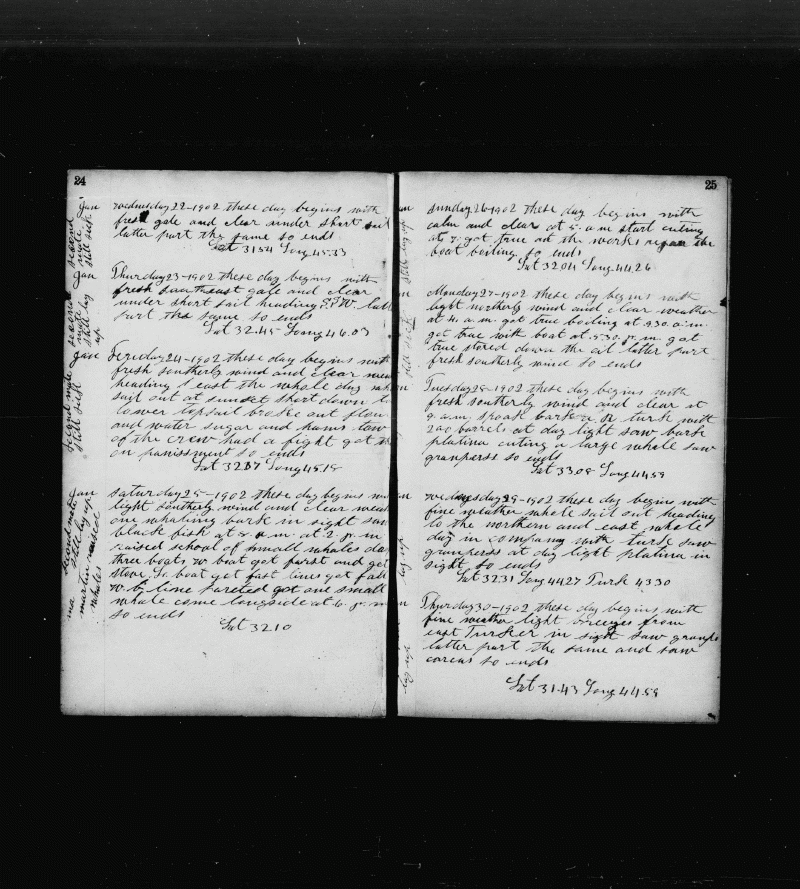 24
Jan wednesday 22-1902 these day begins with
fresh gale and clear under short sail
latter part the same so ends
Lat 3154 Long 45.33
second mate still sick
Jan Thursday 23-1902 these day begins with
fresh gale and clear
under short sail heading latt
part the same so ends
Lat 32.45 Long 46.03
second mate still lay up
Jan 24-1902 these day begins with
fresh southerly wind and clear
heading east the whole day
sail out at sunset short down to
lower topsail broke out flour
and water sugar and hams
of the crew had a fight got
on so ends
Lat 3217 Long 4518
second mate still sick
Jan saturday 25-1902 these day begins
light southerly wind and clear
one whaling bark in sight saw
black fish at a.m. at 2 p.m
raised school of small whales
three boats w boat got farst and get
stove boat got fast lines got
w b line got one small
whale come longside at 6. p.m
so ends
Lat 3210
second mate still lay up
martin raised whales
25
sunday 26-1902 these day begins with
calm and clear at 5. a.m start cuting
at got true at the works
boat boiling so ends
Lat 3204 Long 4426
still lay up
Monday 27-1902 these day begins with
light northerly wind and clear weather
at 4. a.m. got true boiling at 9.30 a.m.
got true with boat at 5.30 p.m. got
true stored down the oil latter part
fresh southerly wind so ends
Tuesday 28-1902 these day begins with
fresh southerly wind and clear at
a.m. spoak bark turk with
200 barrels at day light saw bark
platina cuting a large whale saw
granperss so ends
Lat 3308 Long 4459
29-1902 these day begins with
fine weather whole sail out heading
to the northen and east whole
day in company with turk saw
granperss at day light platina in
sight so ends
Lat 3231 Long 4427 Turk 4330
lay up
Thurday 30-1902 these day begins with
fine weather light breezes from
east in sight saw
latter part the same and saw
so ends
Lat 31.43 Long 4459
lay up